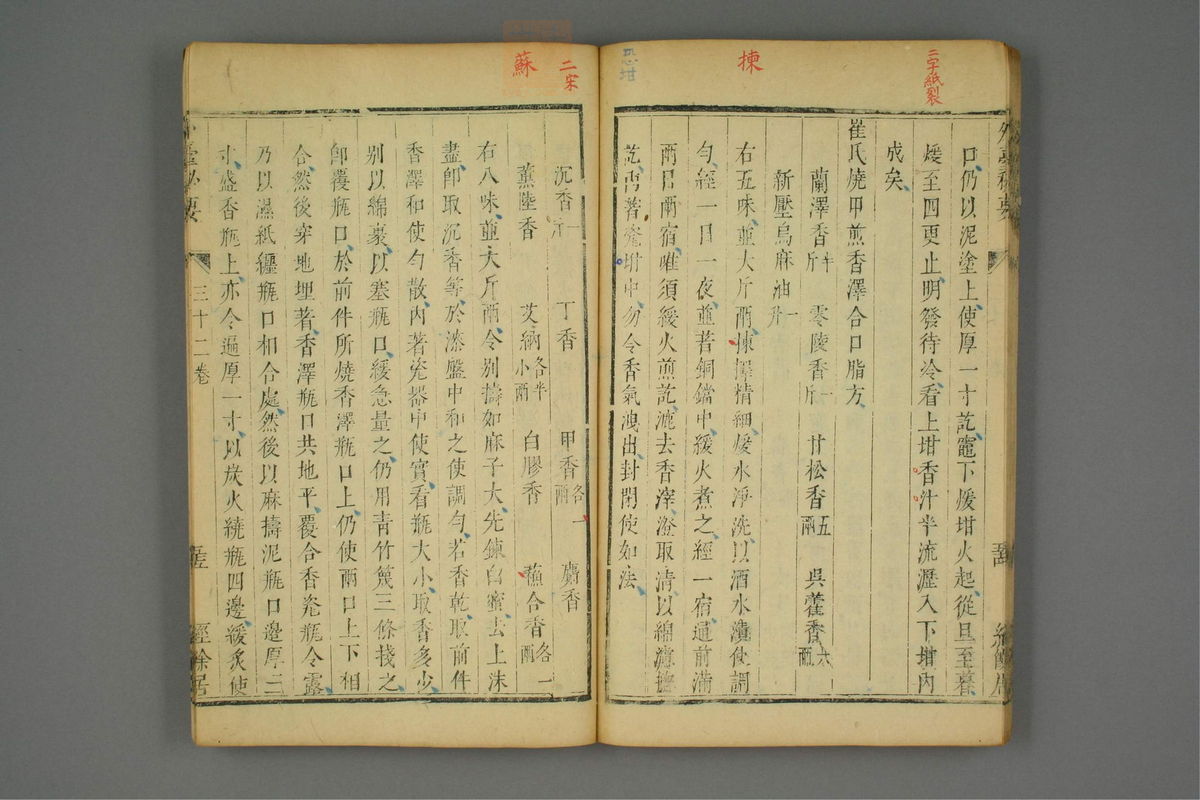 二字紙裂
揀
恐坩
口仍以泥塗上使厚一寸訖竈下煖坩火起從旦至暮
煖至四更止明發待冷看上坩香汁半流瀝入下坩內
成矣
崔氏燒甲煎香澤合口脂方
蘭澤香半斤 零陵香一斤 甘松香五兩 吳藿香六兩
新壓烏麻油一升
右五味並大斤兩揀擇精細煖水淨洗以酒水漬使調
勻經一日一夜並著銅鐺中緩火煮之經一宿通前滿
兩日兩宿唯須緩火煎訖漉去香滓澄取清以綿濾
訖內著瓷坩中勿令香氣洩出封閉使如法
二宋
蘇
沉香一斤 丁香 甲香各一兩 麝香
薰陸香 艾納各半小兩 白膠香 蘓合香各一兩
右八味並大斤兩令別擣如麻子大先鍊白蜜去上沫
盡卽取沉香等於漆盤中和之使調勻若香乾取前件
香澤和使勻散內著瓷器中使實看瓶大小取香多少
別以綿裹以塞瓶口緩急量之仍用青竹篾三條拔之
卽覆瓶口於前件所燒香澤瓶口上仍使兩口上下相
合然後穿地埋著香澤瓶口共地平覆合香瓷瓶令露
乃以濕紙纏瓶口相合處然後以麻擣泥瓶口邊厚二
寸盛香瓶上亦令遍厚一寸以炭火繞瓶四邊緩炙使
臺必要 三十二卷 經餘居